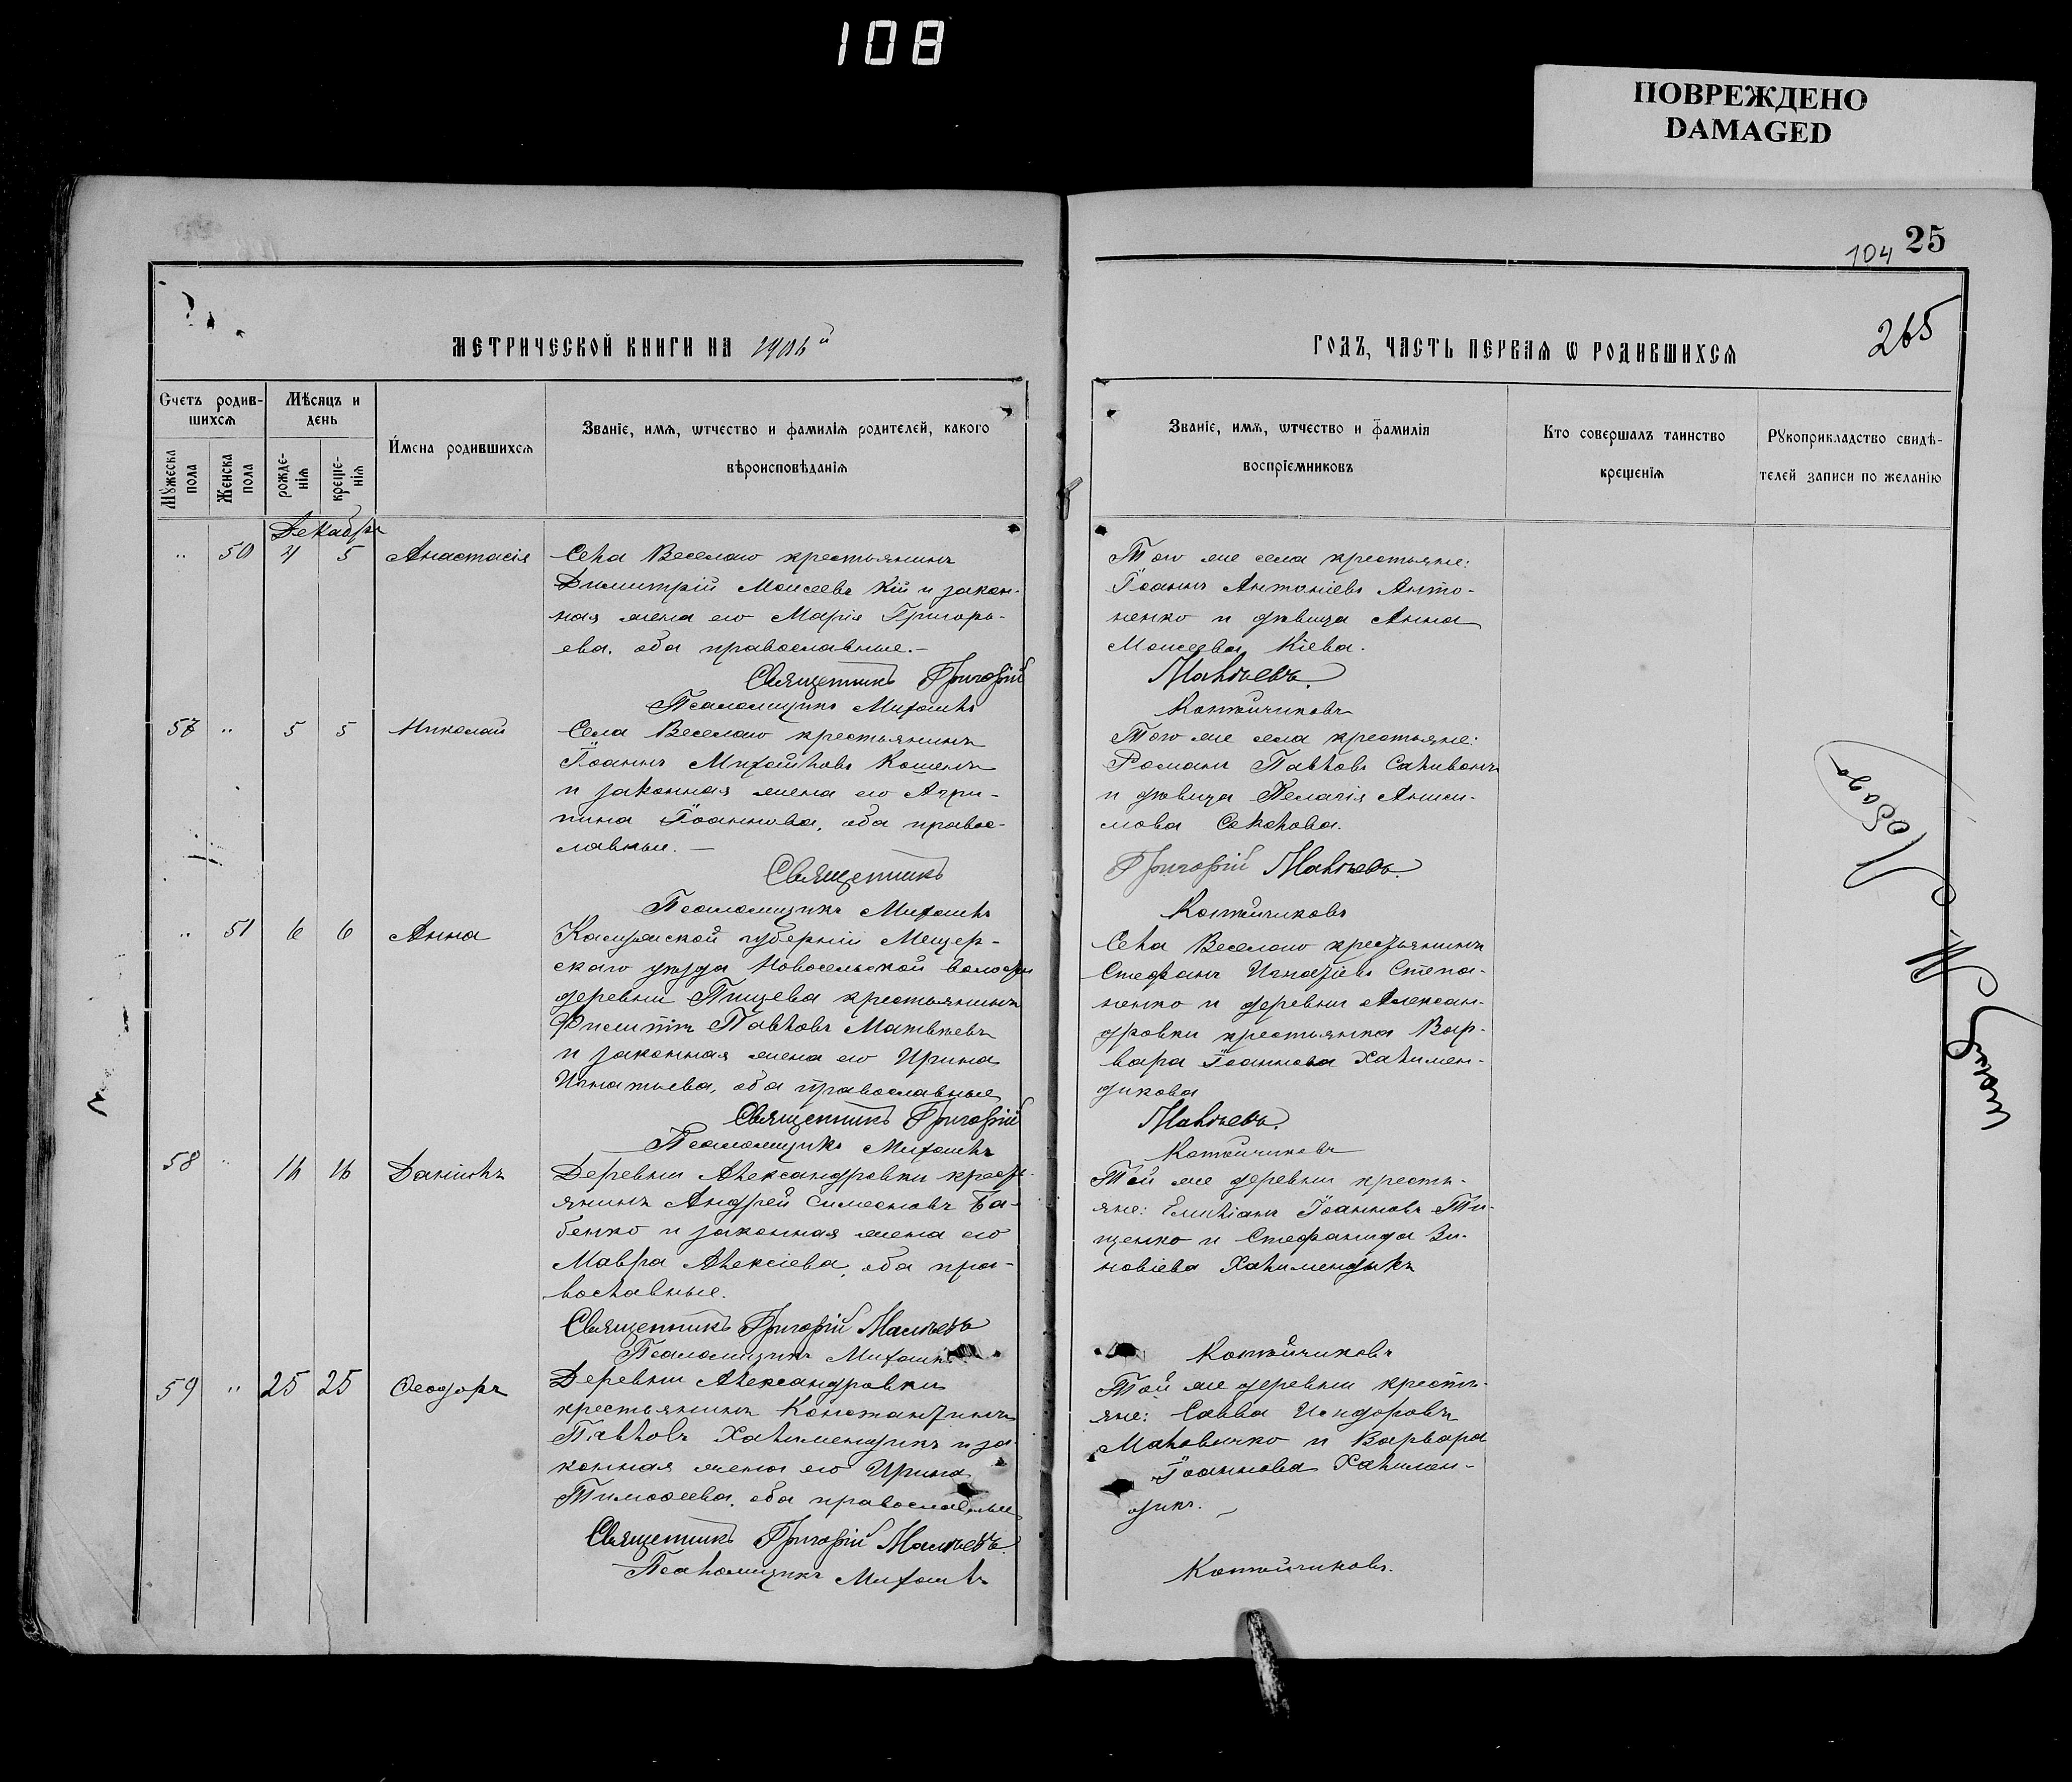 108
ПОВРЕЖДЕНО
DAMAGED
25
104
265
МЕТРИЧЕСКОЙ КНИГИ НА 1906й
ГОДЪ, ЧАСТЬ ПЕРВАЯ Ѡ РОДИВШИХСЯ
Счетъ родив-
шихся
Мꙋжеска пола
Женска пола
Мѣсяцъ и
день
рожде-
нія
креще-
нія
Имена родившихся
Званіе, имя, ѡтчество и фамилія родителей, какого
вѣроисповѣданія
Званіе, имя, ѡтчество и фамилія
воспріемниковъ
Кто совершалъ таинство
крещенія
Рꙋкоприкладство свидѣ-
телей записи по желанію
Декабрь
„ 50 4 5 Анастасія
Села Веселаго крестьянинъ
Димитрій Моисеевъ Кій и закон-
ная жена его Марія Григорь-
ева, оба православные.-
Священникъ Григорій
Псаломщикъ Михаилъ
Того же села крестьяне:
Іоаннъ Антоніевъ Анто-
ненко и дѣвица Анна
Моисеева Кіева.
Матвѣевъ.
57 „ 5 5 Николай
Села Веселаго крестьянинъ
Іоаннъ Михайловъ
и законная жена его Агри-
пина Іоаннова, оба правос-
лавные. —
Священникъ
Псаломщикъ Михаилъ
Того же села крестьяне:
Романъ Павловъ
и дѣвица Пелагія Аниси-
мова Соколова.
Григорій Матвѣевъ.
„ 51 6 6 Анна
губерніи Мещер-
скаго уѣзда Новосельской волости
деревни крестьянинъ
Филиппъ Павловъ Матвѣевъ
и законная жена его Ирина
Игнатьева, оба православные
Священникъ Григорій
Псаломщикъ Михаилъ
Села Веселаго крестьянинъ
Стефанъ Игнатіевъ Степа-
ненко и деревни Алексан-
дровки крестьянка Вар-
вара Іоаннова Халимен-
дикова
Матвѣевъ.
58 „ 16 16 Даніилъ
Деревни Александровки кресть-
янинъ Андрей Симеоновъ Ба-
бенко и законная жена его
Мавра Алексіева, оба пра-
вославные.
Священникъ Григорій Матвѣевъ
Псаломщикъ Михаилъ
Той же деревни кресть-
яне: Емиліанъ Іоанновъ Ти-
щенко и Стефанида Зи-
новіева Халимендикъ
59 „ 25 25 Ѳеодоръ
Деревни Александровки
крестьянинъ Константинъ
Павловъ Халимендикъ и за-
конная жена его Ирина
Тимоѳеева, оба православные
Священникъ Григорій Матвѣевъ.
Псаломщикъ Михаилъ
Той же деревни кресть-
яне: Савва Исидоровъ
и Варвара
Іоаннова Халимен-
дикъ.